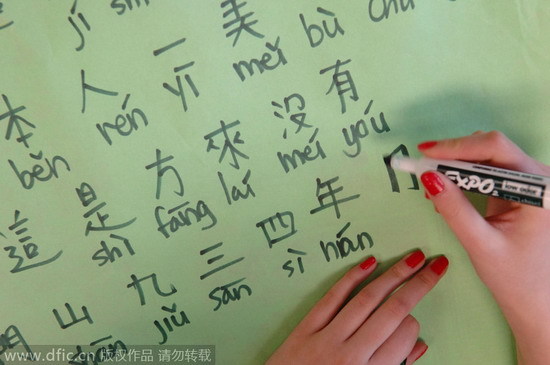 jí shí
本 人 一 美
běn rén yī měi bù
這 是 方 來 沒 有
shì fāng lái méi yǒu
山 九 三 四 年
shān jiǔ sān sì nián
EXPO
low odor
www.dfic.cn 版权作品 请勿转载